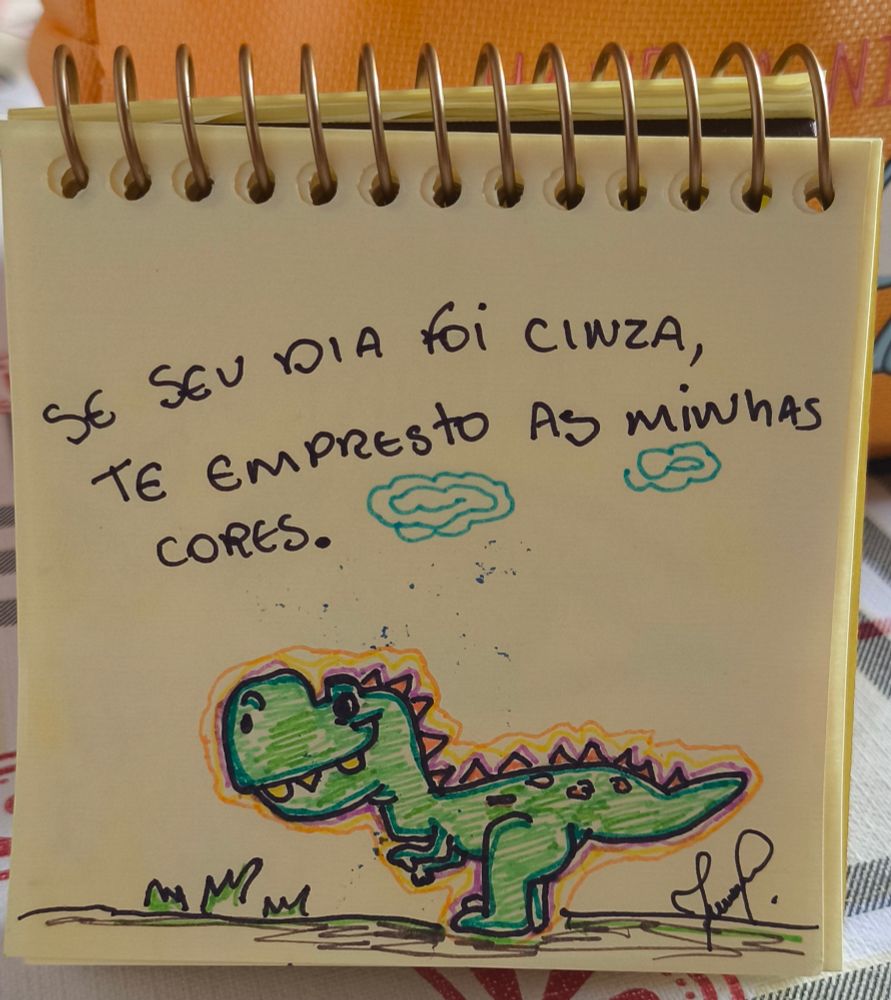 SE SEU DIA FOI CINZA,
TE EMPRESTO AS MINHAS
CORES.